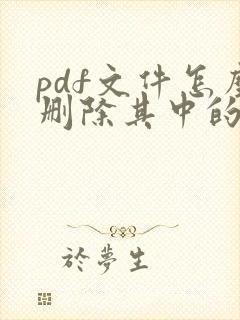 pdf文件怎麼
删除其中的
於夢生